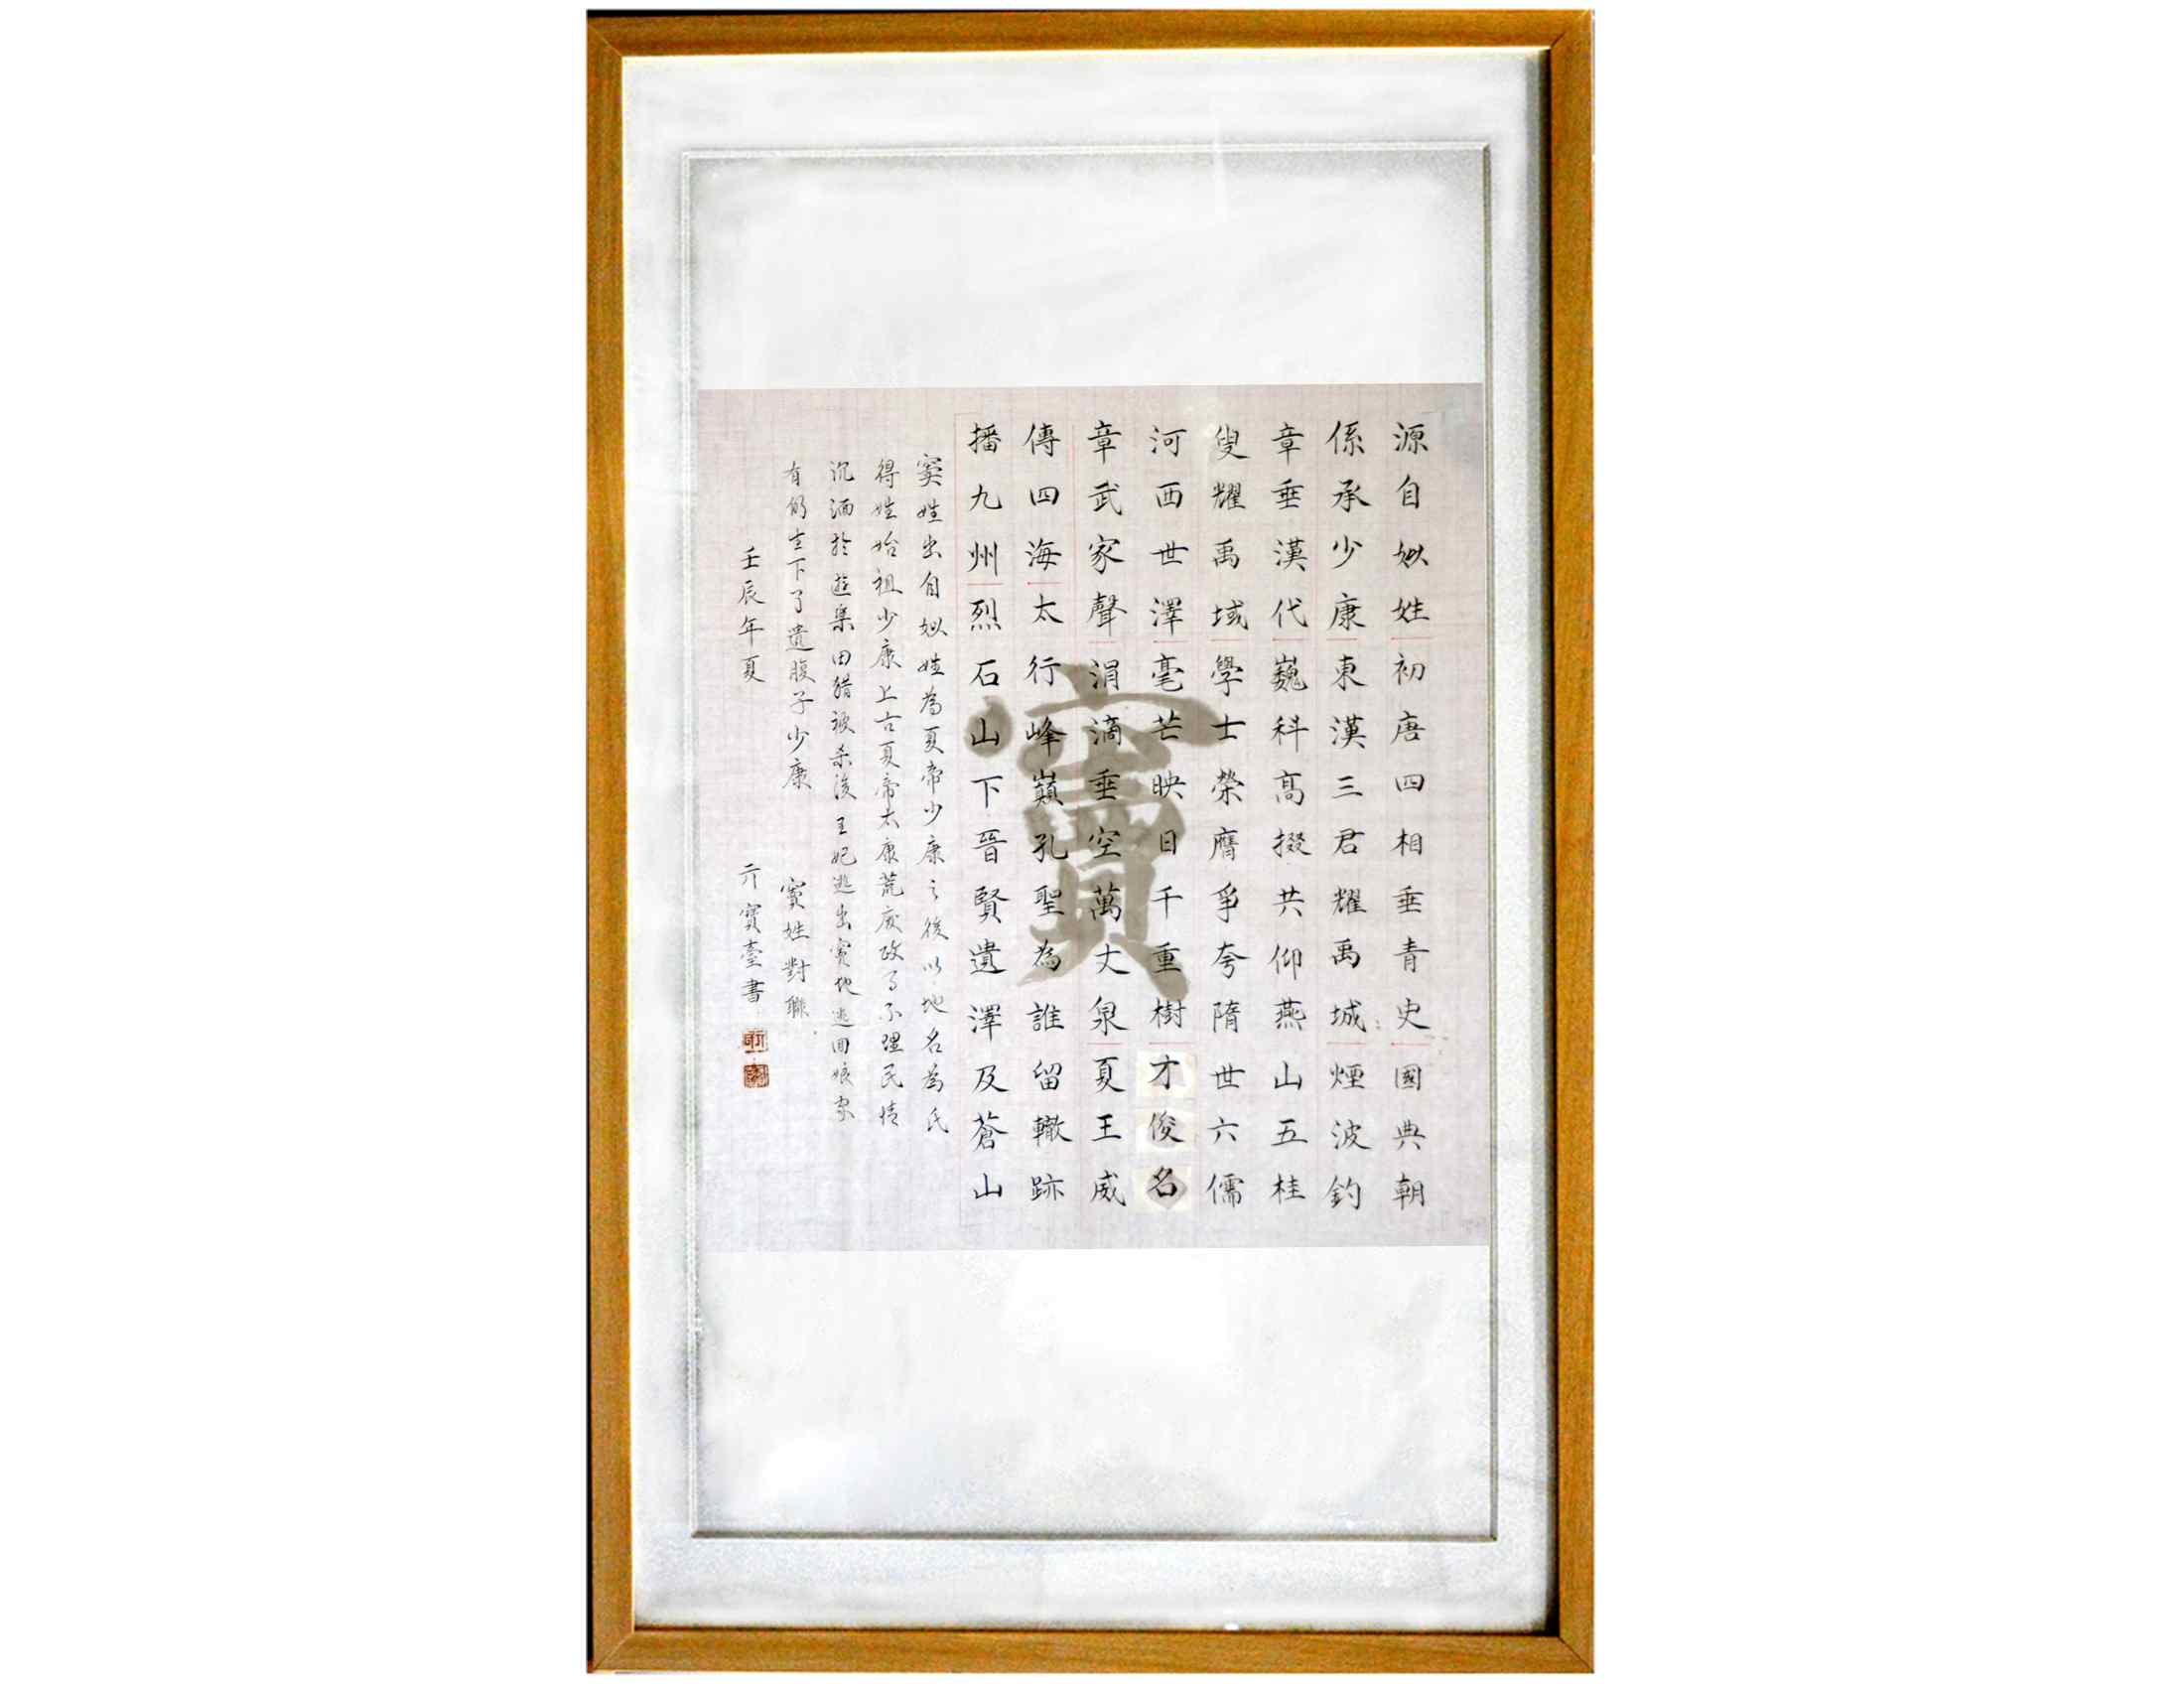 源自姒姓初唐四相垂青史國典朝
係承少康東漢三君耀禹城煙波釣
章垂漢代巍科高掇共仰燕山五桂
叟耀禹域學士榮膺爭夸隋世六儒
河西世澤毫芒映日千重樹才俊名
章武家聲涓滴垂空萬丈泉夏王威
傳四海太行峰巔孔聖為誰留轍跡
播九州烈石山下晉賢遺澤及蒼山
竇姓出自姒姓為夏帝少康之後以地名為氏
得姓始祖少康上古夏帝太康荒廢政事不理民情
沉湎於遊樂田猎被杀後王妃逃出竇地逃回娘家
有仍生下了遺腹子少康 竇姓對聯
壬辰年夏 亓寶臺書
竇